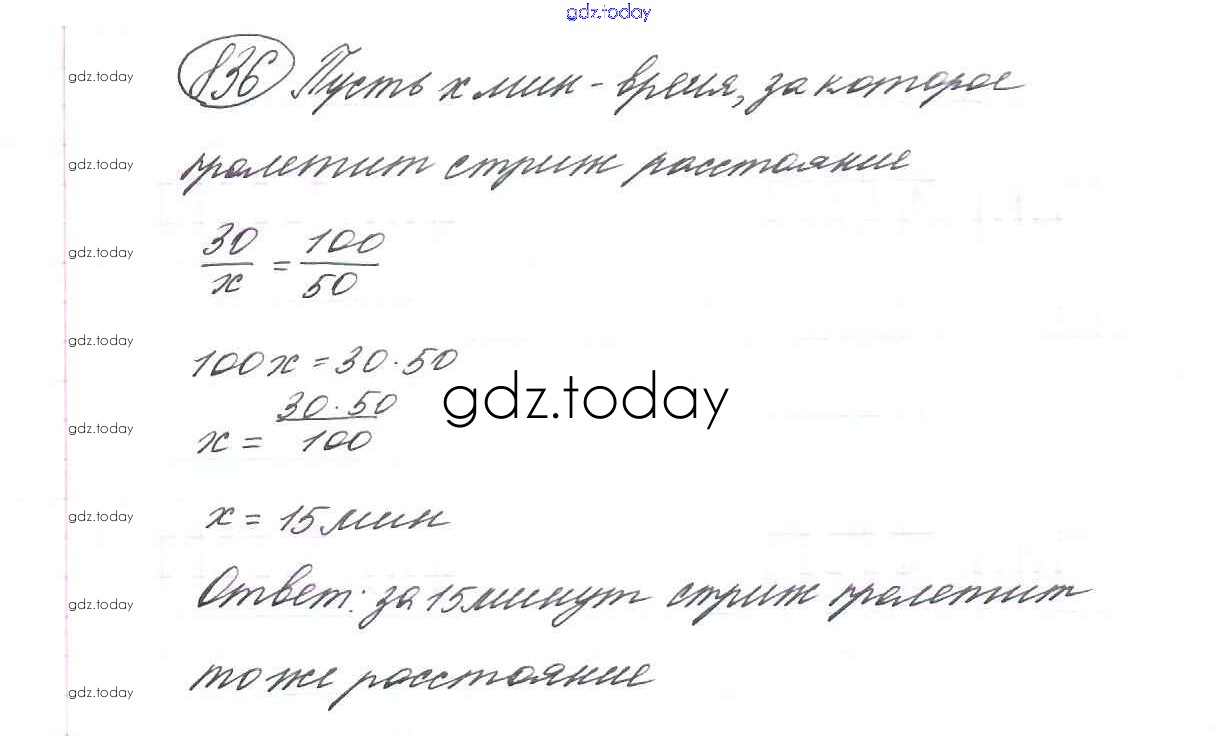 gdz.today
gdz.today
836 Пусть x мин - время, за которое
gdz.today
пролетит стриж расстояние
gdz.today
30/x = 100/50
gdz.today
100x = 30·50
gdz.today
x = 30·50/100
gdz.today
gdz.today
x = 15 мин
gdz.today
Ответ: за 15 минут стриж пролетит
gdz.today
тоже расстояние